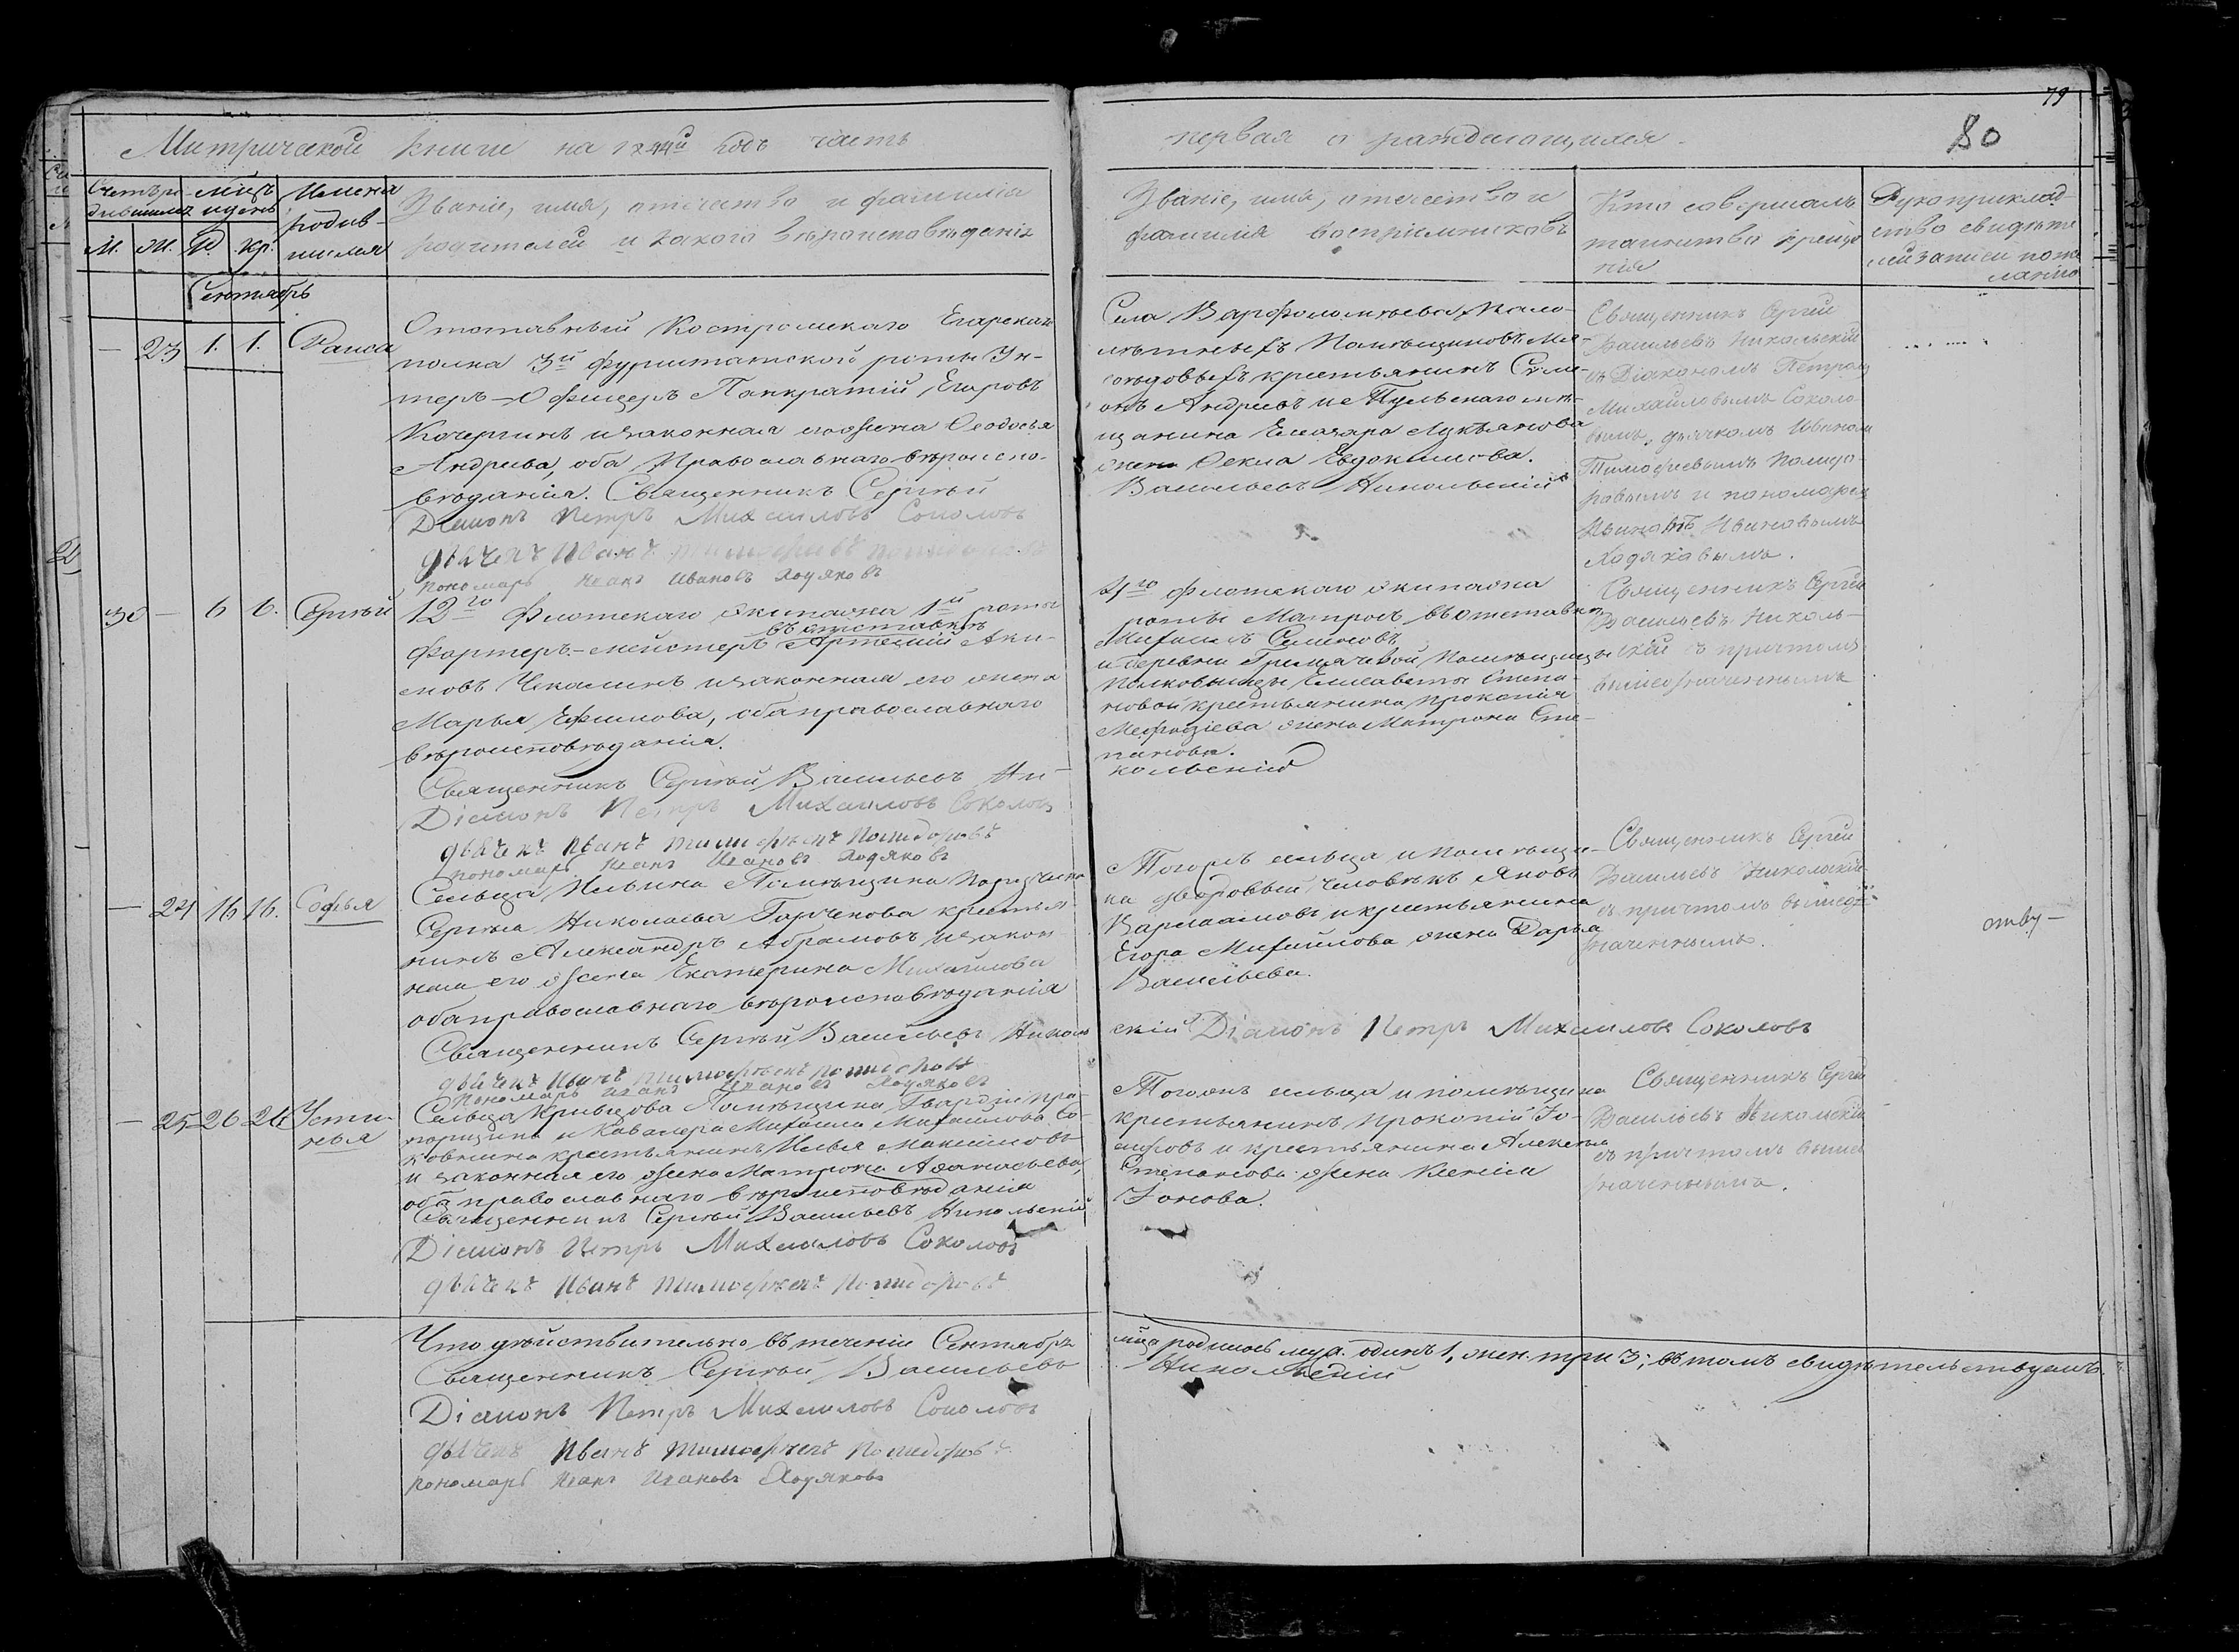 79
80
Митрической книги на 1844й годъ часть первая о раждающихся.
Счетъ ро-
дившихся
М. Ж.
мцъ
и день
Р. Кр.
Имена
родив-
шихся
Званіе, имя, отечество и фамилія
родителей и какого вѣроисповѣданія
Званіе, имя, отечество и
фамилія воспріемниковъ
Кто совершалъ
таинство креще
нія
Рукоприклад-
ство свидѣте
лей записи поже
ланію
Сентябрь
— 23 1. 1. Раиса
Отставный Костромскаго Егарскаго
полка 3й фурштатской роты Ун-
теръ-Офицеръ Панкратій Егоровъ
Кочергинъ и законная его жена Ѳеодосья
Андреева, оба Православнаго вѣроиспо-
вѣданія. Священникъ Сергѣй
Діаконъ Петръ Михаиловъ Соколовъ
дьячекъ Иванъ Тимофеевъ
пономарь Иванъ Ивановъ Ходяковъ
Села Варфоломѣева, Мало-
лѣтныхъ Помѣщиковъ Мя-
соѣдовыхъ крестьянинъ Симе-
онъ Андреевъ и Тульскаго мѣ-
щанина Елеазара Лукьянова
жена Ѳекла Евдокимова.
Васильевъ Никольскій
Священникъ Сергей
Васильевъ Никольскій
съ Діакономъ Петромъ
Михайловымъ Соколо-
вымъ, дьячкомъ Иваномъ
Тимофеевымъ Помидо-
ровымъ и пономаремъ
Иваномъ Ивановымъ
Ходяковымъ.
30 — 6 6. Сергѣй
12го Флотскаго экипажа 1й роты
въ отставкѣ
Фортеръ-мейстеръ Артемій Аки-
мовъ Чекалинъ и законная его жена
Марья Ефимова, оба православнаго
вѣроисповѣданія.
Священникъ Сергѣй Васильевъ Ни-
Діаконъ Петръ Михаиловъ Соколовъ
дьячекъ Иванъ Тимофеевъ Помидоровъ
пономарь Иванъ Ивановъ Ходяковъ
го Флотскаго экипажа
роты Матросъ въ отставкѣ
Михаилъ Семеновъ
и деревни Гремячевой, Помѣщицы
Полковницы Елисаветы Степа-
новой крестьянина Прокопія
Мефодіева жена Матрона Сте-
панова.
кольскій
Священникъ Сергей
Васильевъ Николь-
скій съ причтомъ
вышеозначеннымъ
— 24 16 16. Софья
Сельца Ильина Помѣщика Поручика
Сергѣя Николаева Горчекова крестья-
нинъ Александръ Абрамовъ и закон
ная его жена Екатерина Михайлова
оба православнаго вѣроисповѣданія
Священникъ Сергѣй Васильевъ Николь
дьячекъ Иванъ Тимофеевъ Помидоровъ
пономарь Иванъ Ивановъ Ходяковъ
Тогожъ сельца и помѣщи-
ка дворовый человѣкъ Яковъ
Варлаамовъ и крестьянина
Егора Михайлова жена Дарья
Васильева.
скій Діаконъ Петръ Михаиловъ Соколовъ
Священникъ Сергей
Васильевъ Никольскій
съ причтомъ вышео-
значеннымъ.
— 25 26 26 Усти-
нья
Сельца Кривцова Помѣщика Гвардіи Пра-
порщика и Кавалера Михаила Михайлова
крестьянинъ Илья Максимовъ
и законная его жена Матрона Аѳанасьева,
оба православнаго вѣроисповѣданія
Священникъ Сергѣй Васильевъ Никольскій
Діаконъ Петръ Михаиловъ Соколовъ
дьячекъ Иванъ Тимофеевъ Помидоровъ
Тогожъ сельца и помѣщика
крестьянинъ Прокопій Іо-
сифовъ и крестьянина Алексѣя
Степанова жена Ксенія
Іонова.
Священникъ Сергей
Васильевъ Никольскій
съ причтомъ выше
значеннымъ.
Что дѣйствительно въ теченіи Сентября мца родилось муж. одинъ 1, жен. три 3; въ томъ свидѣтельствуемъ.
Священникъ Сергѣй Васильевъ Никольскій
Діаконъ Петръ Михаиловъ Соколовъ
дьячекъ Иванъ Тимофеевъ Помидоровъ
пономарь Иванъ Ивановъ Ходяковъ